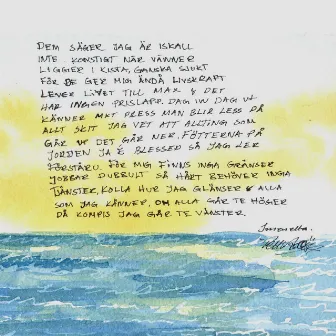 DEM SÄGER JAG ÄR ISKALL
INTE KONSTIGT NÄR VÄNNER
LIGGER I KISTA, GANSKA SJUKT
FÖR DE GER MIG ÄNDÅ LIVSKRAFT
LEVER LIVET TILL MAX & DET
HAR INGEN PRISLAPP. DAG IN DAG UT
KÄNNER MKT PRESS MAN BLIR LESS PÅ
ALLT SKIT JAG VET ATT ALLTING SOM
GÅR UPP DET GÅR NER. FÖTTERNA PÅ
JORDEN JA É BLESSED SÅ JAG LER
FÖRSTÅRU. FÖR MIG FINNS INGA GRÄNSER
JOBBAR DUBBELT SÅ HÅRT BEHÖVER INGA
TJÄNSTER, KOLLA HUR JAG GLÄNSER & ALLA
SOM JAG KÄNNER. OM ALLA GÅR TE HÖGER
DÅ KOMPIS JAG GÅR TE VÄNSTER.